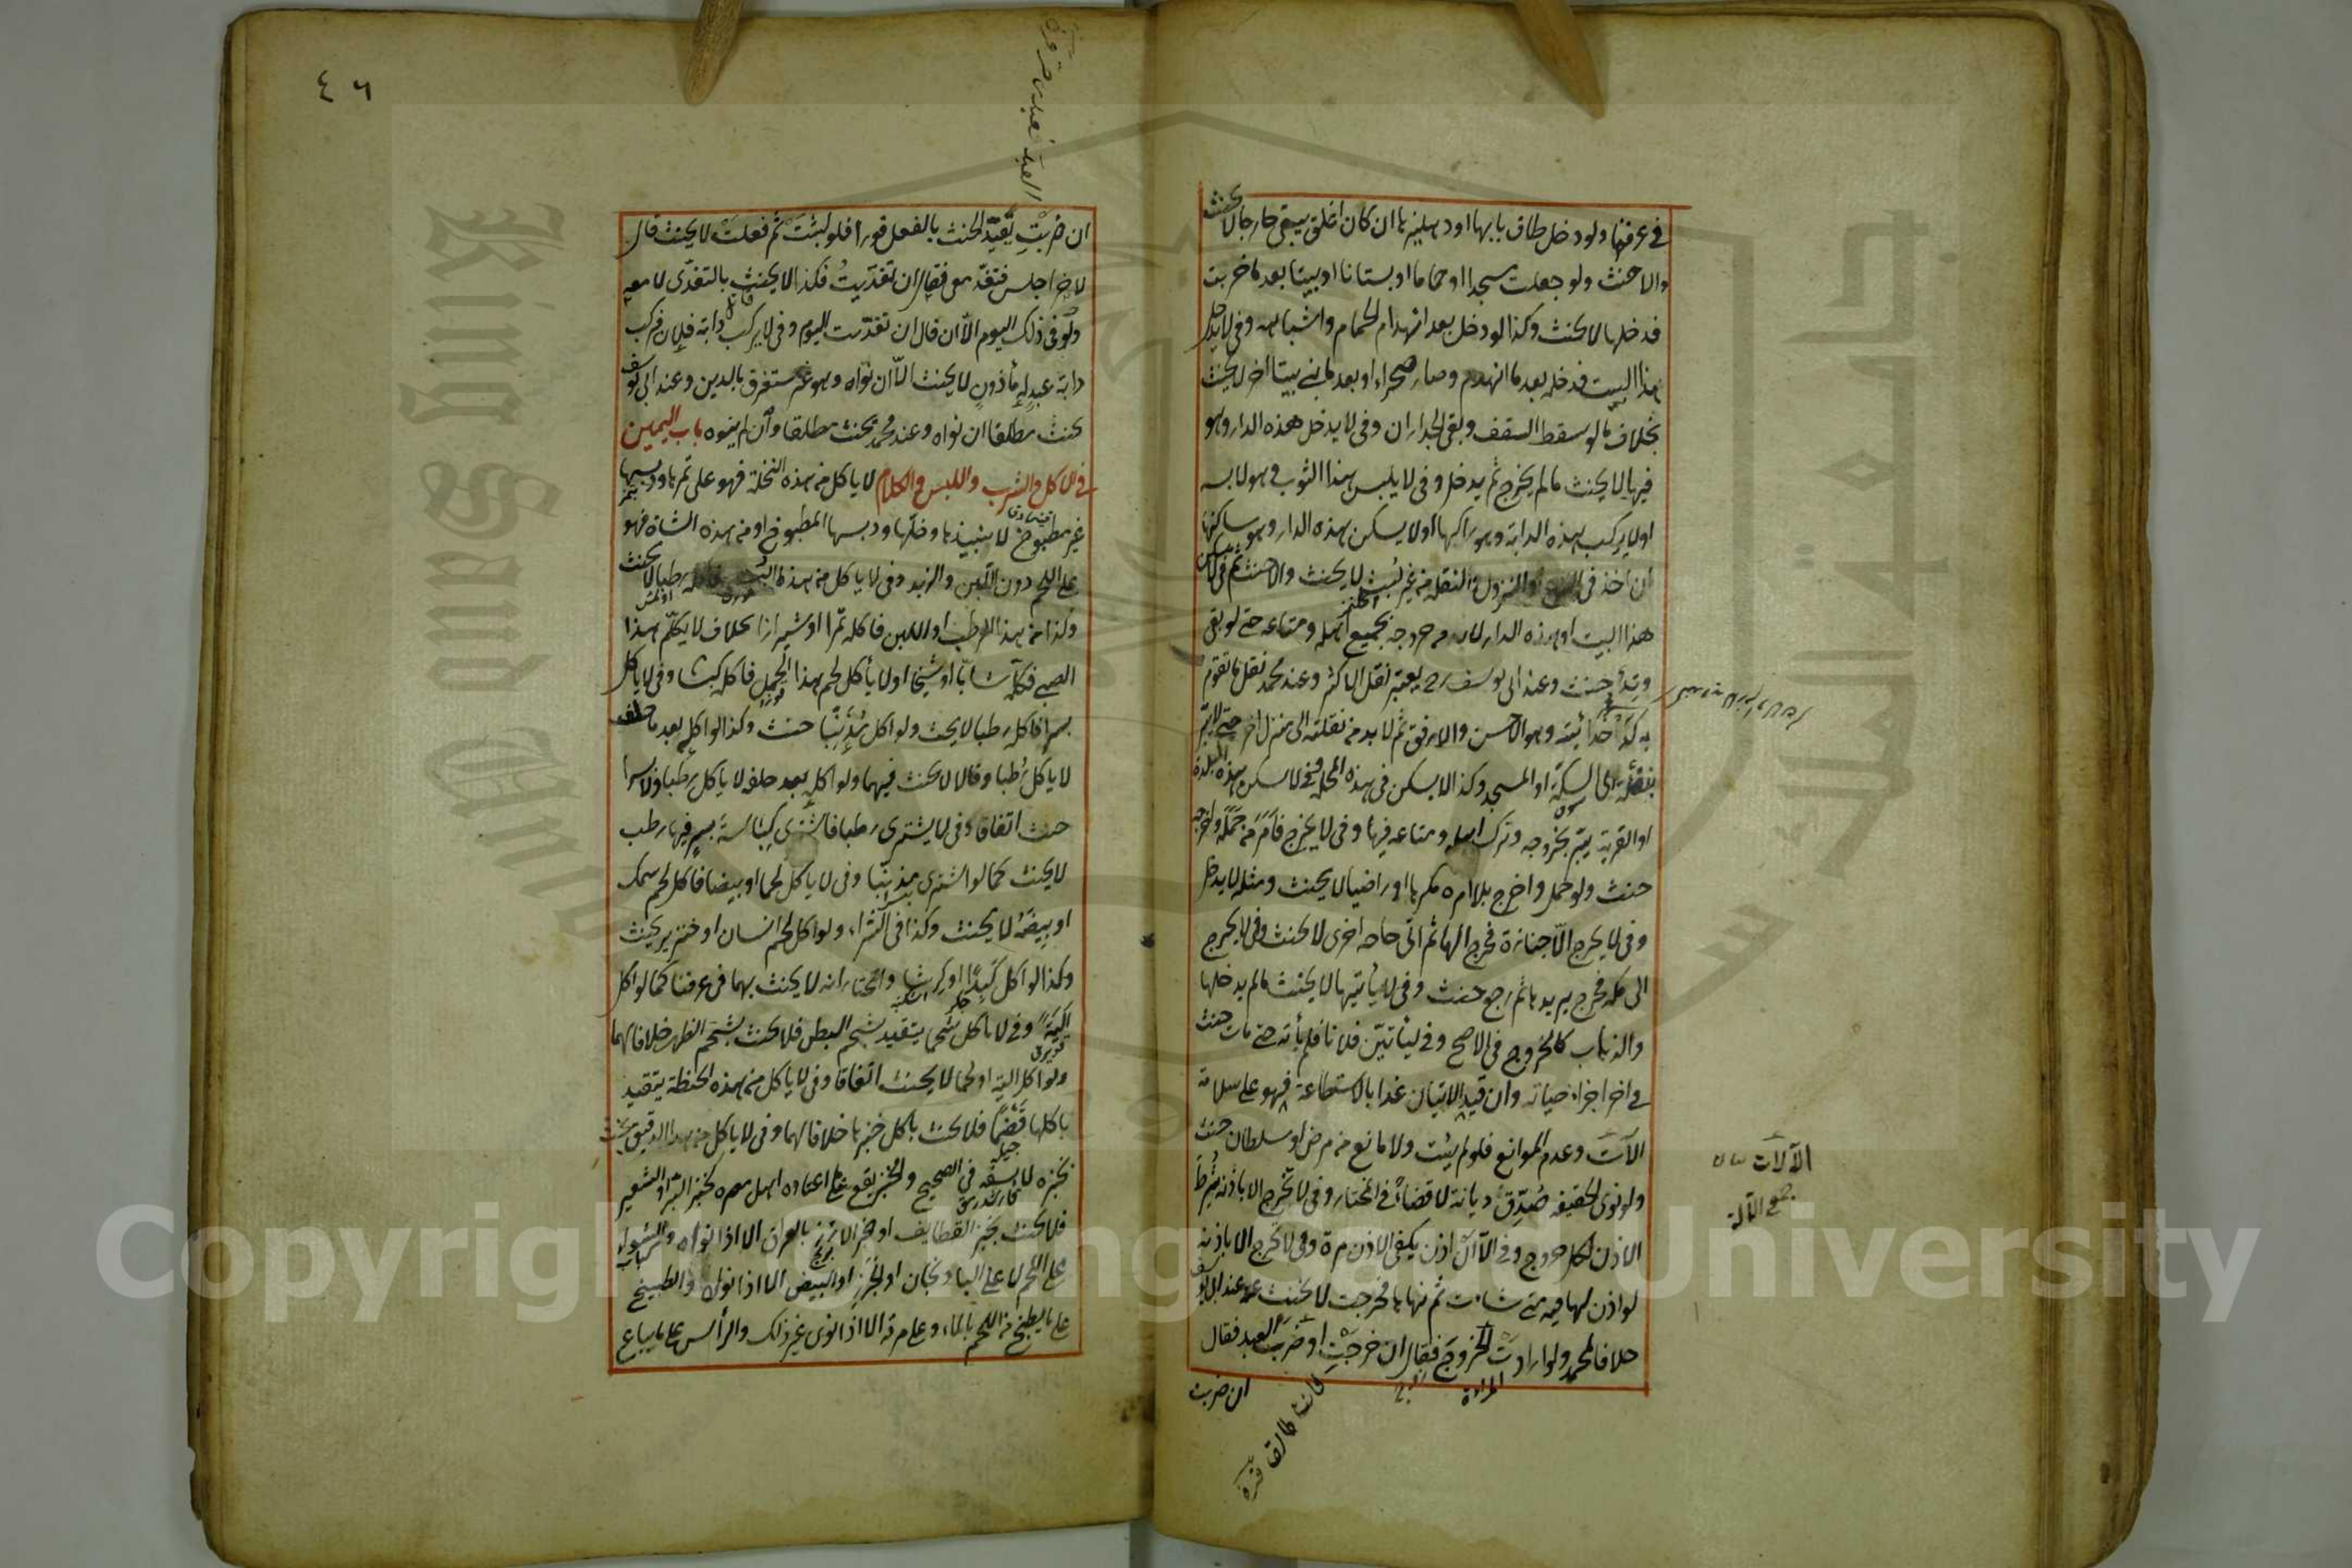 في عرفنا ولو دخل طاق بابها او دهليزها ان كان اغلق يبقى خارجا لا يحنث
والا حنث ولو جعلت مسجدا او حماما او بستانا او بيتا بعد ما خربت
فدخلها لا يحنث وكذا لو دخل بعد انهدام الحمام واشباهه وفي لا يدخل
هذا البيت فدخله بعد ما انهدم وصار صحراء او بعد ما بني بيتا آخر لا يحنث
بخلاف ما لو سقط السقف وبقي الجدران وفي لا يدخل هذه الدار وهو
فيها لا يحنث ما لم يخرج ثم يدخل وفي لا يلبس هذا الثوب وهو لابسه
او لا يركب هذه الدابة وهو راكبها او لا يسكن هذه الدار وهو ساكنها
ان اخذ في والنزول والنقلة من غير لبث لا يحنث والا حنث ثم في لا يسكن
هذا البيت او هذه الدار لا بد من خروجه بجميع اهله ومتاعه حتى لو بقي
وتد حنث وعند ابي يوسف رح يعتبر نقل الاكثر وعند محمد نقل ما تقوم
به كدخدائيته وهو الاحسن والارفق ثم لا بد من نقلته الى منزل آخر حتى لا يبر
بنقلته الى السكة او المسجد وكذا لا يسكن في هذه المحلة وفي لا يسكن هذه البلدة
او القرية يبر بخروجه وترك اهله ومتاعه فيها وفي لا يخرج فامر من حمله واخرجه
حنث ولو حمل واخرج بلا امره مكرها او راضيا لا يحنث ومثله لا يدخل
وفي لا يخرج الا جنازة فخرج اليها ثم اتى حاجة اخرى لا يحنث وفي لا يخرج
الى مكة فخرج يريدها ثم رجع حنث وفي لا يأتيها لا يحنث ما لم يدخلها
والذهاب كالخروج في الاصح وفي ليأتين فلانا فلم يأته حتى مات حنث
في آخر اجزاء حياته وان قيد الاتيان غدا بالاستطاعة فهو على سلامة
الآلات وعدم الموانع فلو لم يأت ولا مانع من مرض او سلطان حنث
ولو نوى الحقيقة صدق ديانة لا قضاء في المختار وفي لا تخرج الا باذنه شرط
الاذن لكل خروج وفي الا ان اذن يكفي الاذن مرة وفي لا تخرج الا باذنه
لو اذن لها فيه متى شاءت ثم نهاها فخرجت لا يحنث عند ابي يوسف
خلافا لمحمد ولو ارادت الخروج فقال ان خرجت او ضرب العبد فقال
ان ضربت
المراءة
فانت طالق
الآلات
جمع الآلة
٤٦
ان ضربت تقيد الحنث بالفعل فورا فلو لبثت ثم فعلت لا يحنث قال
لآخر اجلس فتغد معي فقال ان تغديت فكذا لا يحنث بالتغدي لا معه
ولو في ذلك اليوم الا ان قال ان تغديت اليوم وفي لا يركب دابة فلان فركب
دابة عبد له مأذون لا يحنث الا ان نواه وهو غير مستغرق بالدين وعند ابي يوسف
يحنث مطلقا ان نواه وعند محمد يحنث مطلقا وان لم ينوه باب اليمين
في الاكل والشرب واللبس والكلام لا يأكل من هذه النخلة فهو على ثمرها ودبسها
غير مطبوخ لا بنبيذها وخلها ودبسها المطبوخ او من هذه الشاة فهو
على اللحم دون اللبن والزبد وفي لا يأكل من هذا البسر فأكله رطبا لا يحنث
وكذا من هذا الرطب او اللبن فأكله تمرا او شيرازا بخلاف لا يكلم هذا
الصبي فكلمه شابا او شيخا او لا يأكل لحم هذا الحمل فأكله كبشا وفي لا يأكل
بسرا فأكله رطبا لا يحنث ولو اكل مذنبا حنث وكذا لو اكله بعد ما حلف
لا يأكل رطبا وقالا لا يحنث فيهما ولو اكله بعد حلفه لا يأكل رطبا ولا بسرا
حنث اتفاقا وفي لا يشتري رطبا فاشترى كباسة بسر فيها رطب
لا يحنث كما لو اشترى مذنبا وفي لا يأكل لحما او بيضا فأكل لحم سمك
او بيضه لا يحنث وكذا في الشراء ولو اكل لحم انسان او خنزير يحنث
وكذا لو اكل كبدا او كرشا والمختار انه لا يحنث بهما في عرفنا كما لو اكل
الية وفي لا يأكل شحما يتقيد بشحم البطن فلا يحنث بشحم الظهر خلافا لهما
ولو اكل الية او لحما لا يحنث اتفاقا وفي لا يأكل من هذه الحنطة يتقيد
باكلها قضما فلا يحنث باكل خبزها خلافا لهما وفي لا يأكل من هذا الدقيق يحنث
بخبزه لا بسفه في الصحيح والخبز يقع على ما اعتاده اهل مصره كخبز البر والشعير
فلا يحنث بخبز القطايف او خبز الارز بالعراق الا اذا نواه والشواء
على اللحم لا على الباذنجان او الجزر او البيض الا اذا نواه والطبيخ
على ما يطبخ من اللحم بالماء وعلى مرقه الا اذا نوى غير ذلك والرأس على ما يباع
King Saud University
Copyright © King Saud University